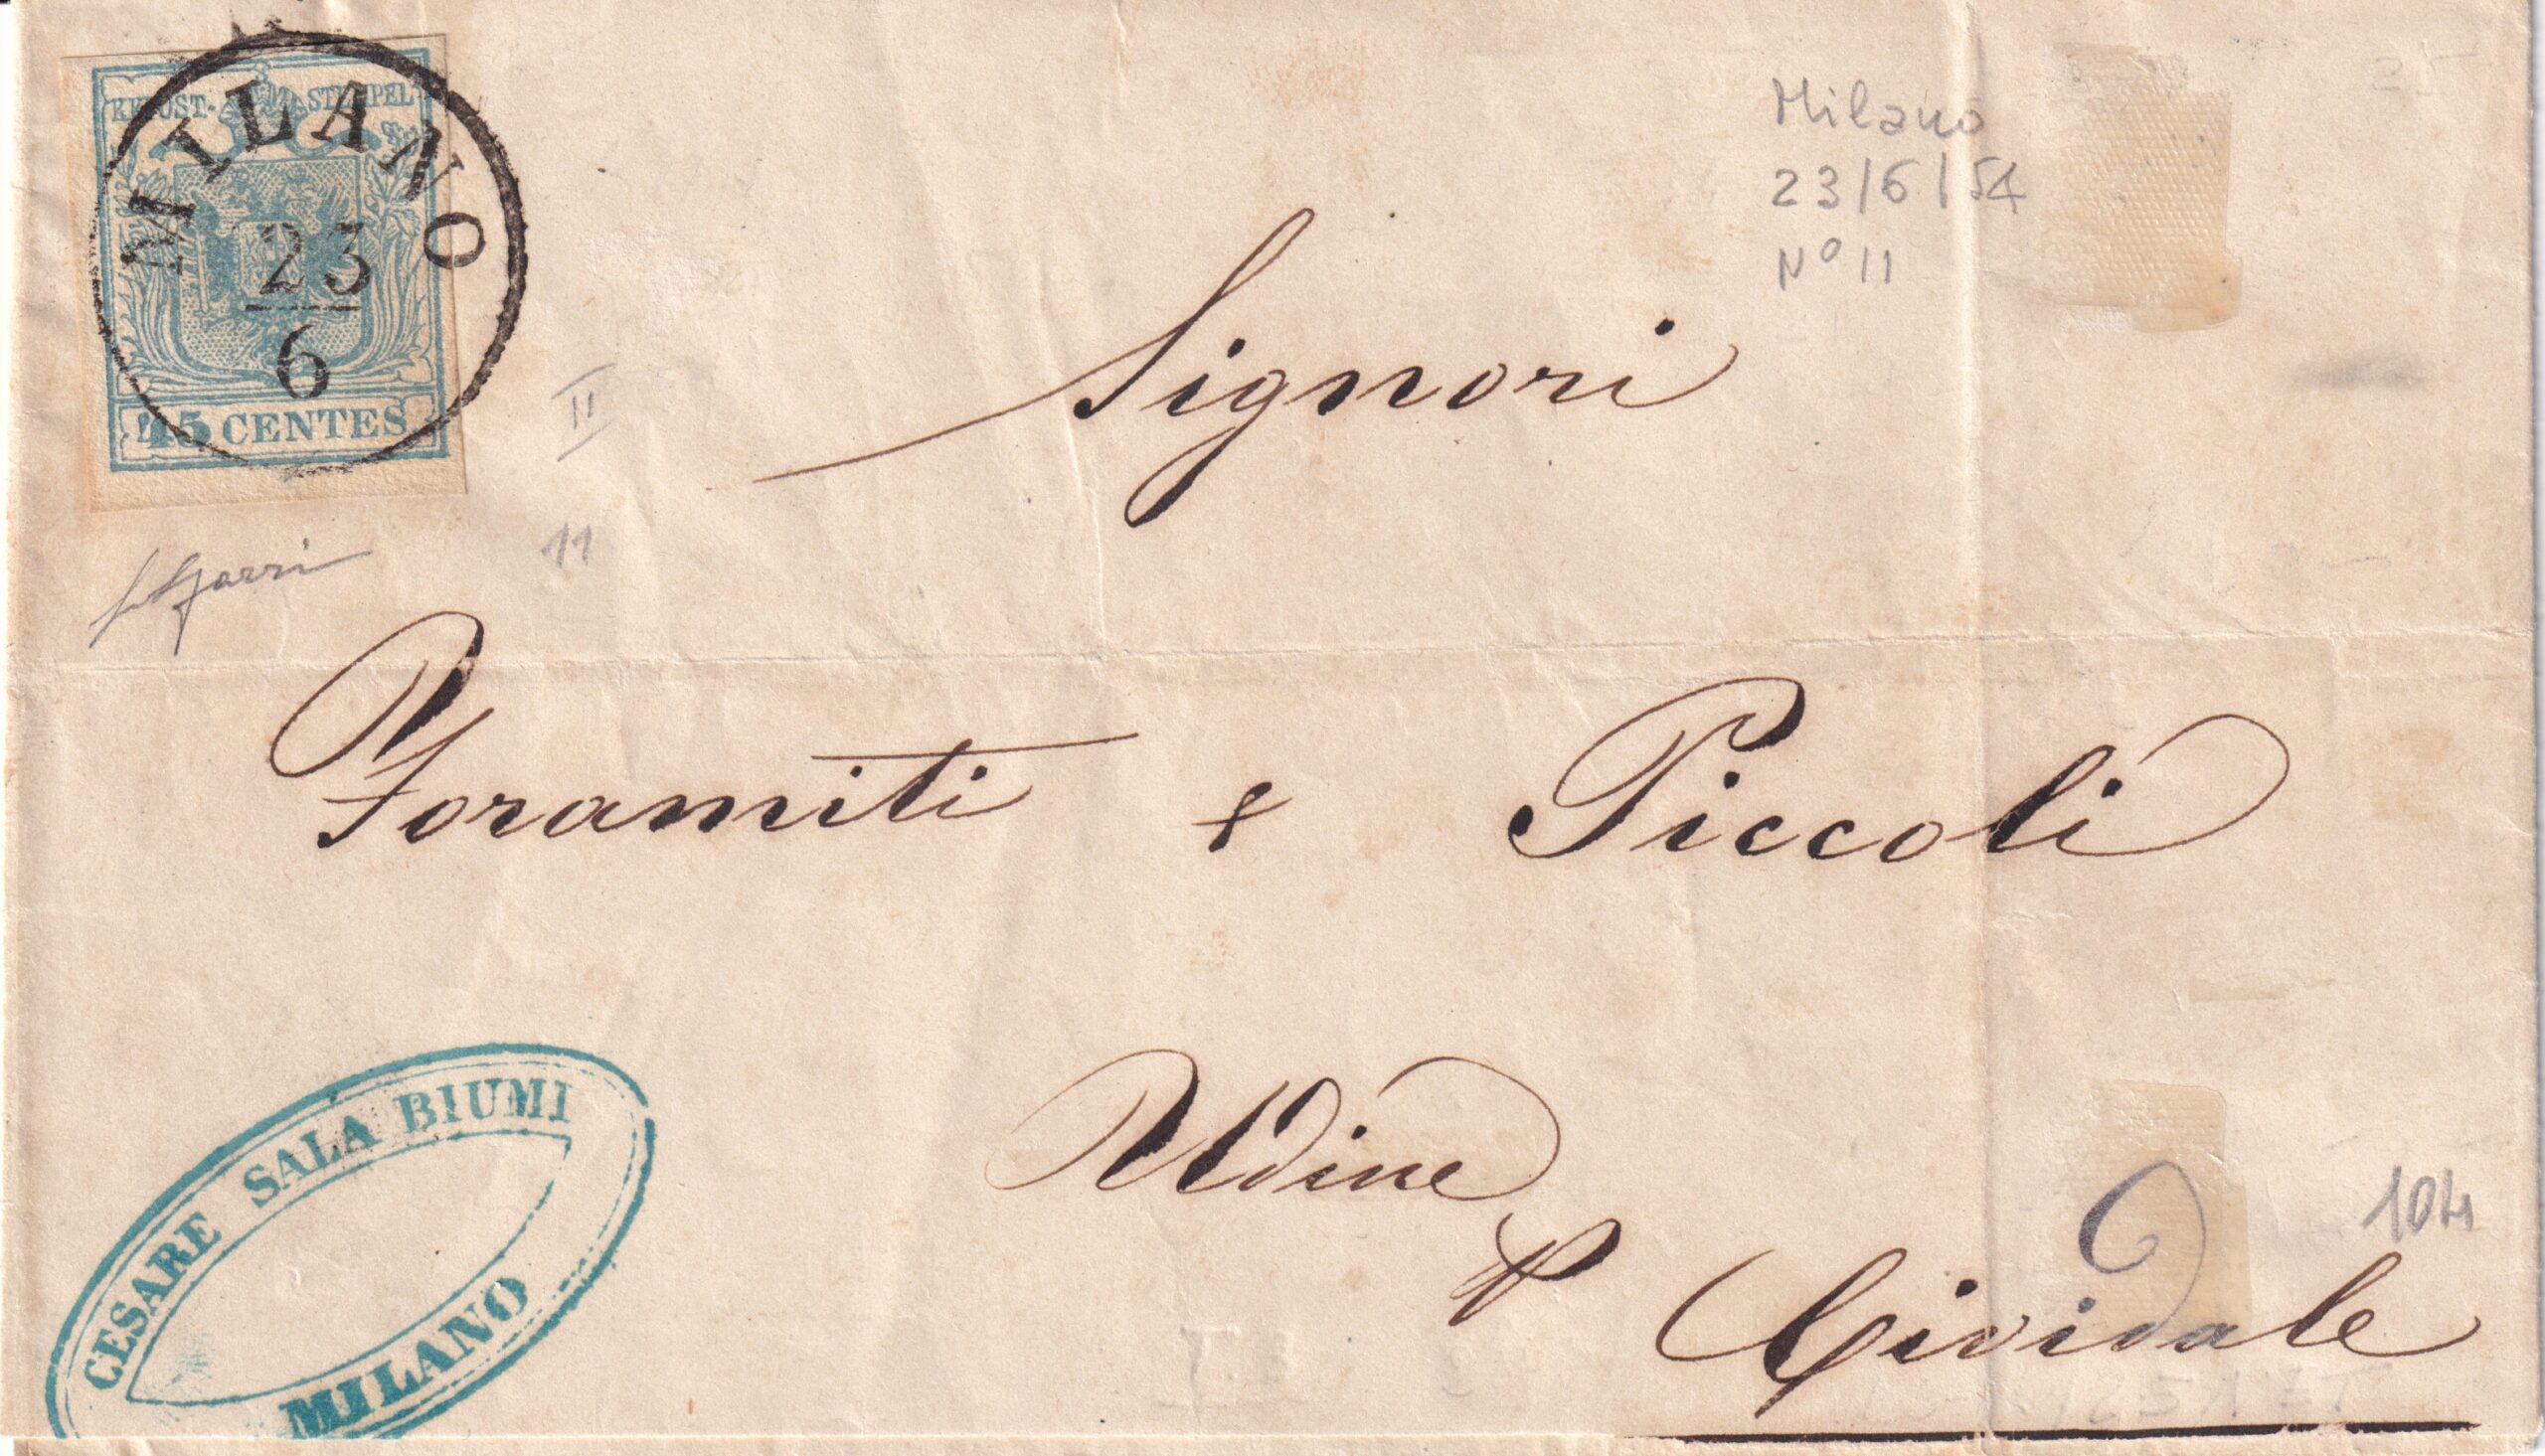 KK POST-STEMPEL
MILANO
23
6
45 CENTES
Milano
23/6/54
N° 11
Signori
II
11
Foramiti & Piccoli
Udine
p Cividale
104
CESARE SALA BIUMI
MILANO